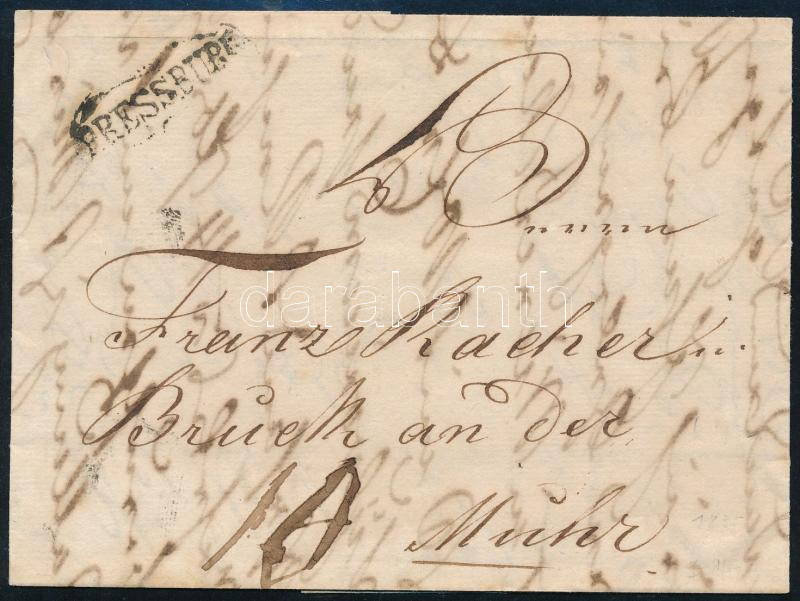 PRESSBURG
Herrn
Franz Kacher in
Bruck an der
Muhr
darabanth